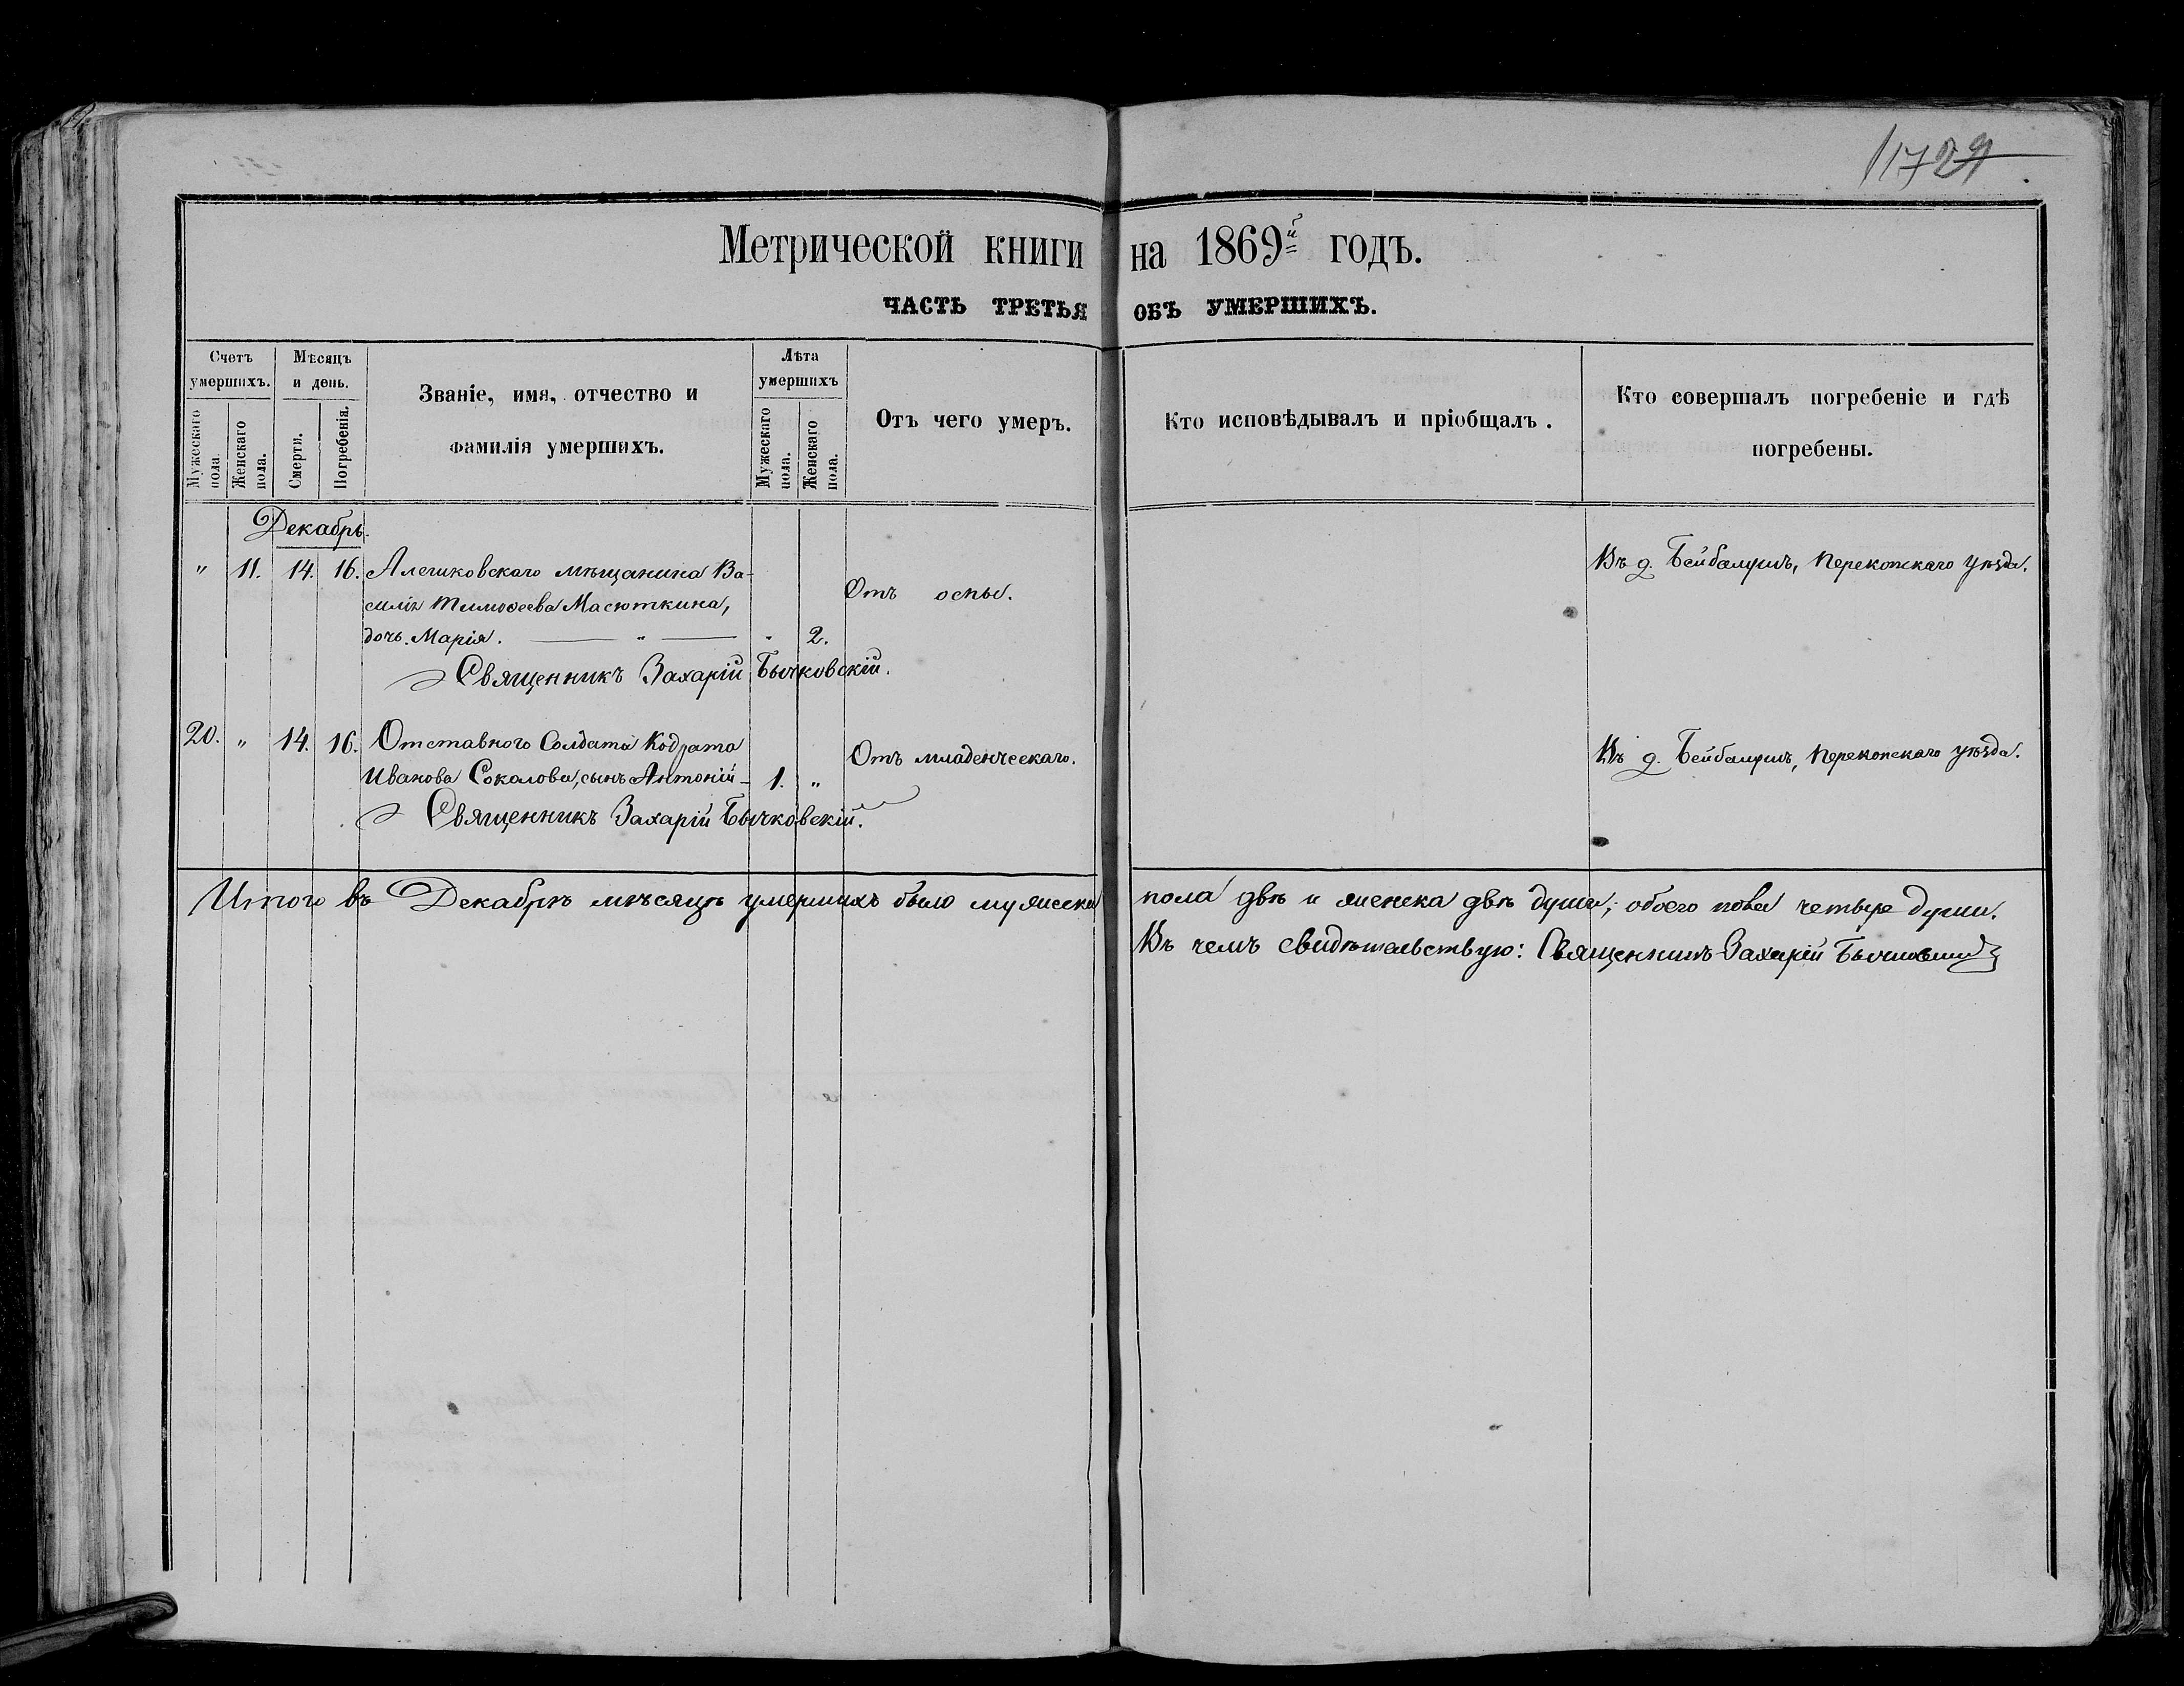 1729
Метрической книги на 1869й годъ.
ЧАСТЬ ТРЕТЬЯ ОБЪ УМЕРШИХЪ.
Счетъ умершихъ.
Мужескаго пола.
Женскаго пола.
Мѣсяцъ и день.
Смерти.
Погребенія.
Званіе, имя, отчество и фамилія умершихъ.
Лѣта умершихъ
Мужескаго пола.
Женскаго пола.
Отъ чего умеръ.
Кто исповѣдывалъ и пріобщалъ.
Кто совершалъ погребеніе и гдѣ погребены.
Декабрь.
" 11. 14. 16. Алешковскаго мѣщанина Ва-
силія Тимоѳеева Масюткина, Отъ оспы.
дочь Марія. — " — " 2.
Въ д. Бейбалушъ, Перекопскаго Уѣзда.
Священникъ Захарій Бычковскій.
20. " 14. 16. Отставного Солдата Кодрата
Иванова Соколова, сынъ Антоній - 1. " Отъ младенческаго.
Въ д. Бейбалушъ, Перекопскаго уѣзда.
Священникъ Захарій Бычковскій.
Итого въ Декабрѣ мѣсяцѣ умершихъ было мужеска пола двѣ и женска двѣ души; обоего пола четыре души.
Въ чемъ свидѣтельствую: Священникъ Захарій Бычковскій